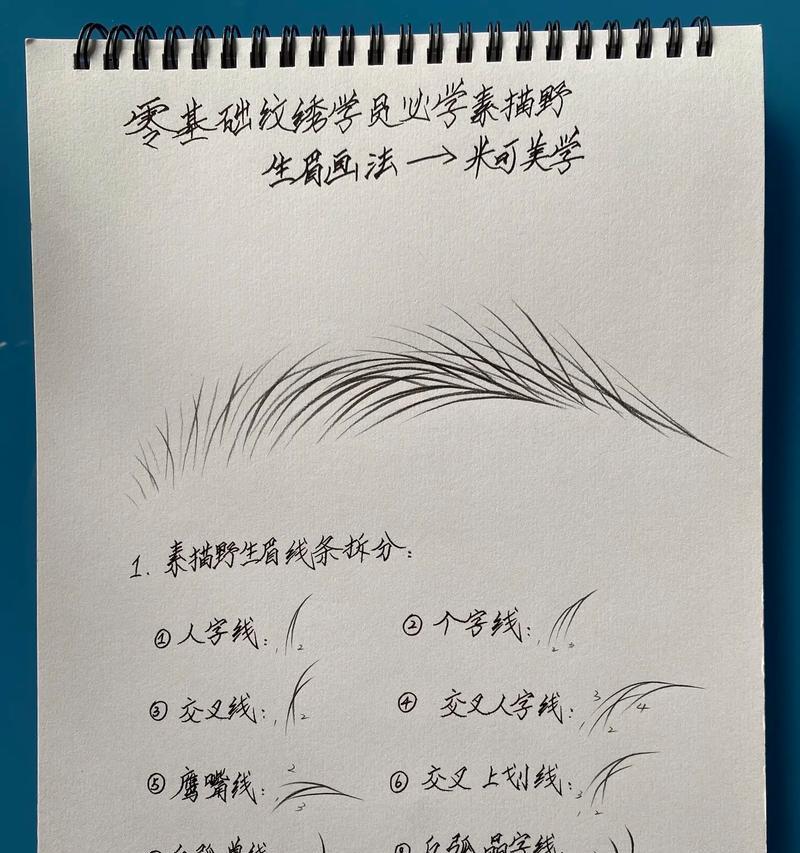 零基础纹绣学员必学素描野
生眉画法→米可美学
1. 素描野生眉线条拆分:
①人字线: 1 2
②个字线: 1 2 3
③交叉线: 1 2
④交叉人字线: 1 2 3 4
⑤鹰嘴线: 1 2 3
⑥交叉上划线: 1 2 3